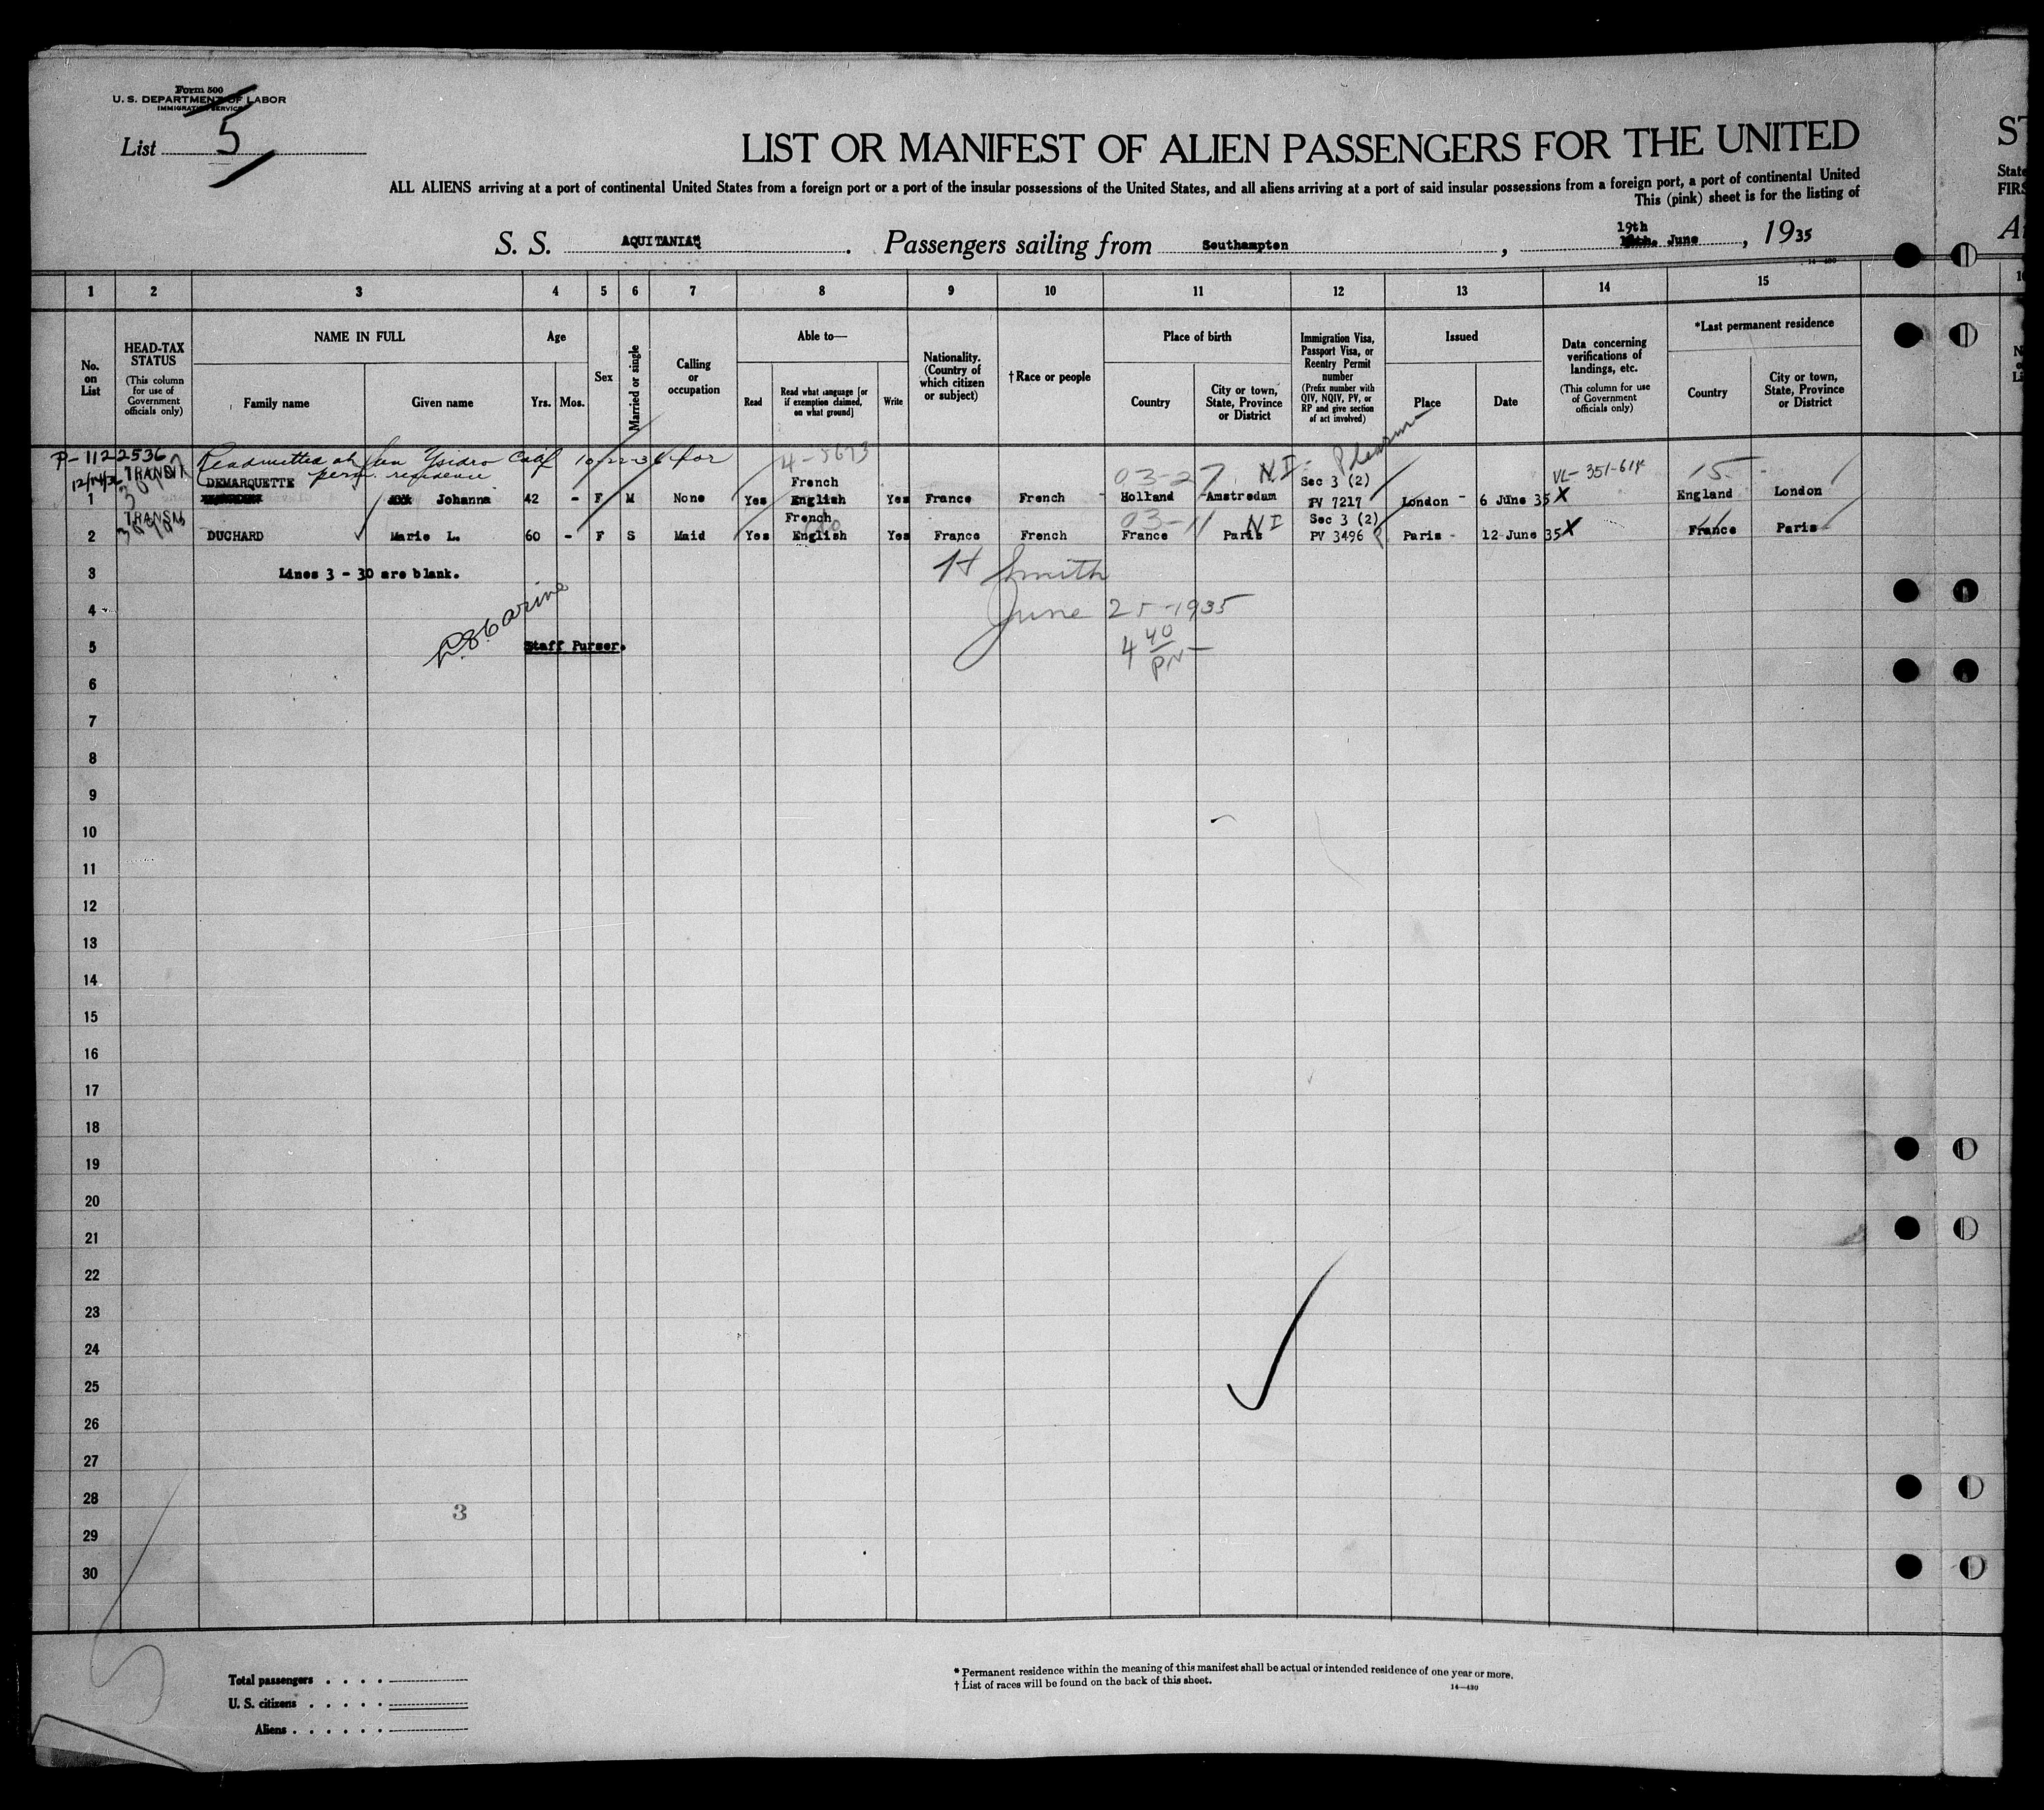 Form 500
U. S. DEPARTMENT OF LABOR
IMMIGRATION SERVICE
List 5
LIST OR MANIFEST OF ALIEN PASSENGERS FOR THE UNITED
ST
ALL ALIENS arriving at a port of continental United States from a foreign port or a port of the insular possessions of the United States, and all aliens arriving at a port of said insular possessions from a foreign port, a port of continental United
State
This (pink) sheet is for the listing of
FIRS
19th
S. S. AQUITANIA. Passengers sailing from Southampton, June, 1935
14—430
1 2 3 4 5 6 7 8 9 10 11 12 13 14 15
No. on List
HEAD-TAX STATUS
(This column for use of Government officials only)
NAME IN FULL
Family name
Given name
Age
Yrs.
Mos.
Sex
Married or single
Calling or occupation
Able to—
Read
Read what language [or if exemption claimed, on what ground]
Write
Nationality. (Country of which citizen or subject)
†Race or people
Place of birth
Country
City or town, State, Province or District
Immigration Visa, Passport Visa, or Reentry Permit number
(Prefix number with QIV, NQIV, PV, or RP and give section of act involved)
Issued
Place
Date
Data concerning verifications of landings, etc.
(This column for use of Government officials only)
*Last permanent residence
Country
City or town, State, Province or District
P-1122536 Readmitted at San Ysidro Calif 10-22-36 for 4-5673
TRANSIT perm. residence 03-27 N I Sec 3 (2) VL-351-618 15
DEMARQUETTE French
1 Johanna 42 - F M None Yes English Yes France French Holland Amstredam PV 7217 London 6 June 35 X England London
TRANSIT French 03-11 N I Sec 3 (2)
2 DUCHARD Marie L. 60 - F S Maid Yes English Yes France French France Paris PV 3496 P Paris 12 June 35 X France Paris
3 Lines 3 - 30 are blank. H Smith
4 June 25-1935
5 Staff Purser. 4 40 PM
6
7
8
9
10
11
12
13
14
15
16
17
18
19
20
21
22
23
24
25
26
27
28 3
29
30
Total passengers
U. S. citizens
Aliens
* Permanent residence within the meaning of this manifest shall be actual or intended residence of one year or more.
† List of races will be found on the back of this sheet.
14—430